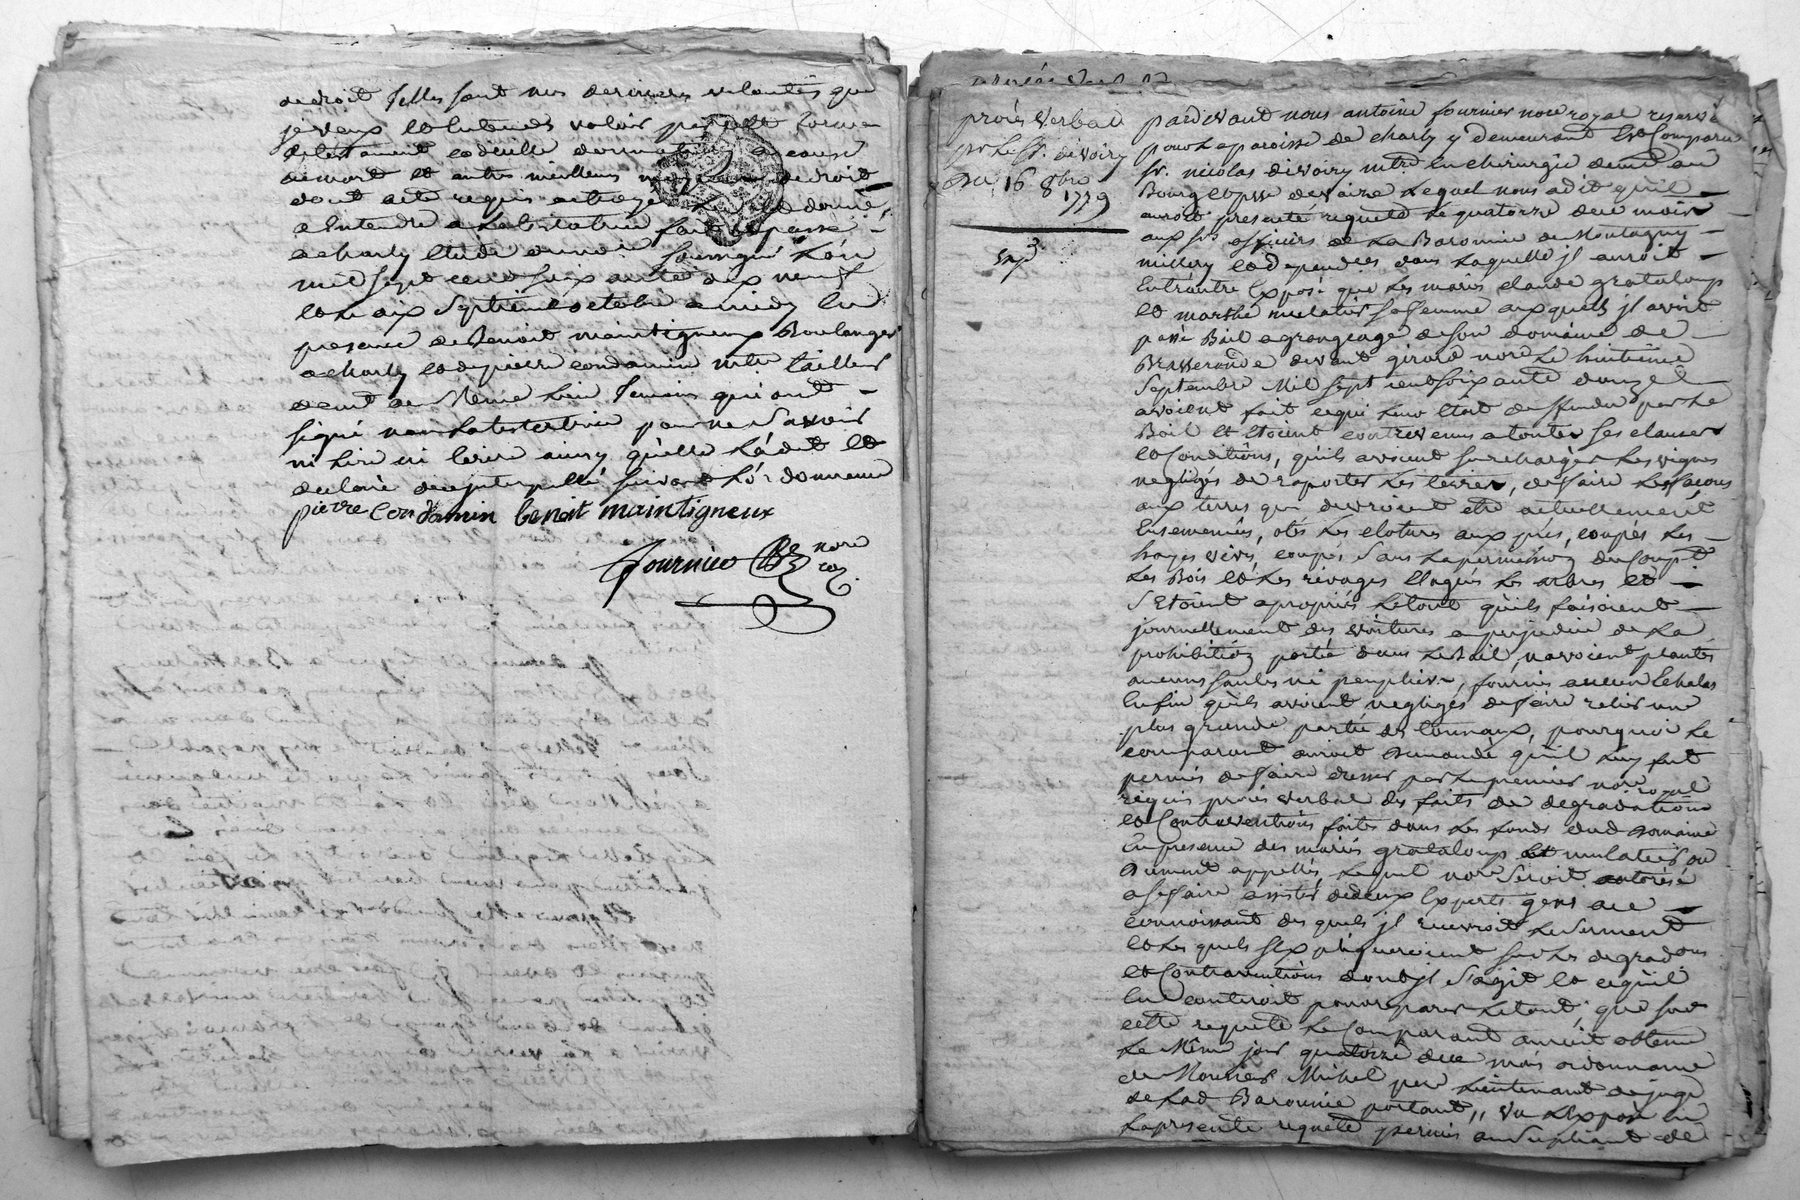 de droit Telles sont mes dernieres volontés que
je veux et entends valoir par forme
de testament codicille donnation a cause
de mort et autres meilleurs moyens de droit
dont acte requis octroyé lu et donné
a entendre a la testatrice fait et passé
a charly etude du no.re soussigné L'an
mil sept cent soix ante dix neuf
et le dix septieme octobre a midy En
presence de Benoit maintigneux Boulanger
a charly et de pierre condamin m.tre tailleur
dem.t au Meme lieu Temoins qui ont
signé non la testatrice pour ne Savoir
ni lire ni ecrire ainsy qu'elle l'a dit et
declaré de ce interpellé suivant L'ordonnance
pierre Condamin benoit maintigneux
fournier no.re roy.
procés verbal
pr Le Sr. devoiry
Du 16 8bre
1779
Exp.é
pardevant nous antoine fournier no.re royal reservé
pour La paroisse de charly y demeurant Est Comparu
sr. nicolas devoiry m.tre En chirurgie dem.t au
Bourg et p.sse de vaize Lequel nous a dit qu'il
auroit presenté requete Le quatorze de ce mois
aux s.rs officiers de La Baronnie de Montagny
millery et dependces dans Laquelle jl auroit
Entr'autre Exposé que Les mariés claude grataloup
et marthe mulatier sa femme auxquels jl avoit
passé Bail a grangeage de son domaine de
Brasserande devant girard no.re Le huitieme
Septembre Mil sept cent soix ante douze
avoient fait ce qui leur Etoit deffendu par Le
Bail et Etoient contrevenus a toutes ses clauses
et Conditions, qu'ils avoient surchargés Les vignes
negligés de raporter Les terres, de faire Les facons
aux terres qui devroient etre actuellement
Ensemencés, otés Les clotures aux prés, coupés Les
hayes vives, coupés Sans La permission du Comp.t
Les Bois et Les rivages Elagués Les arbres et
S'Etoient apropriés Le tout qu'ils faisoient
journellement des voitures au prejudice de La
prohibition portée dans Le Bail n'avoient plantés
aucuns saules ni peupliers, fournis aucun Echalas
Enfin qu'ils avoient negligés de faire relier une
plus grande partie des tonnaux, pourquoi Le
comparant auroit demandé qu'il luy fut
permis de faire dresser par Le premier no.re royal
requis procés verbal des faits de degradations
et Contraventions faites dans Les fonds dud domaine
En presence des mariés grataloup et mulatier ou
Dument appellés Lequel no.re Seroit autorisé
a se faire assister de deux Experts gens a ce
connoissant des quels jl recevroit Le Serment
et Les quels s'Expliqueroient sur Les degradons
et Contraventions dont jl S'agit et ce qu'il
En couteroit pour reparer Le tout, que sur
cette requete Le Comparant auroit obtenu
Le Même jour quatorze de ce mois ordonnance
de Monsieur Michel pere Lieutenant de juge
de Lad Baronnie portant,, vu L'Exposé En
La presente requete permis au Supliant de